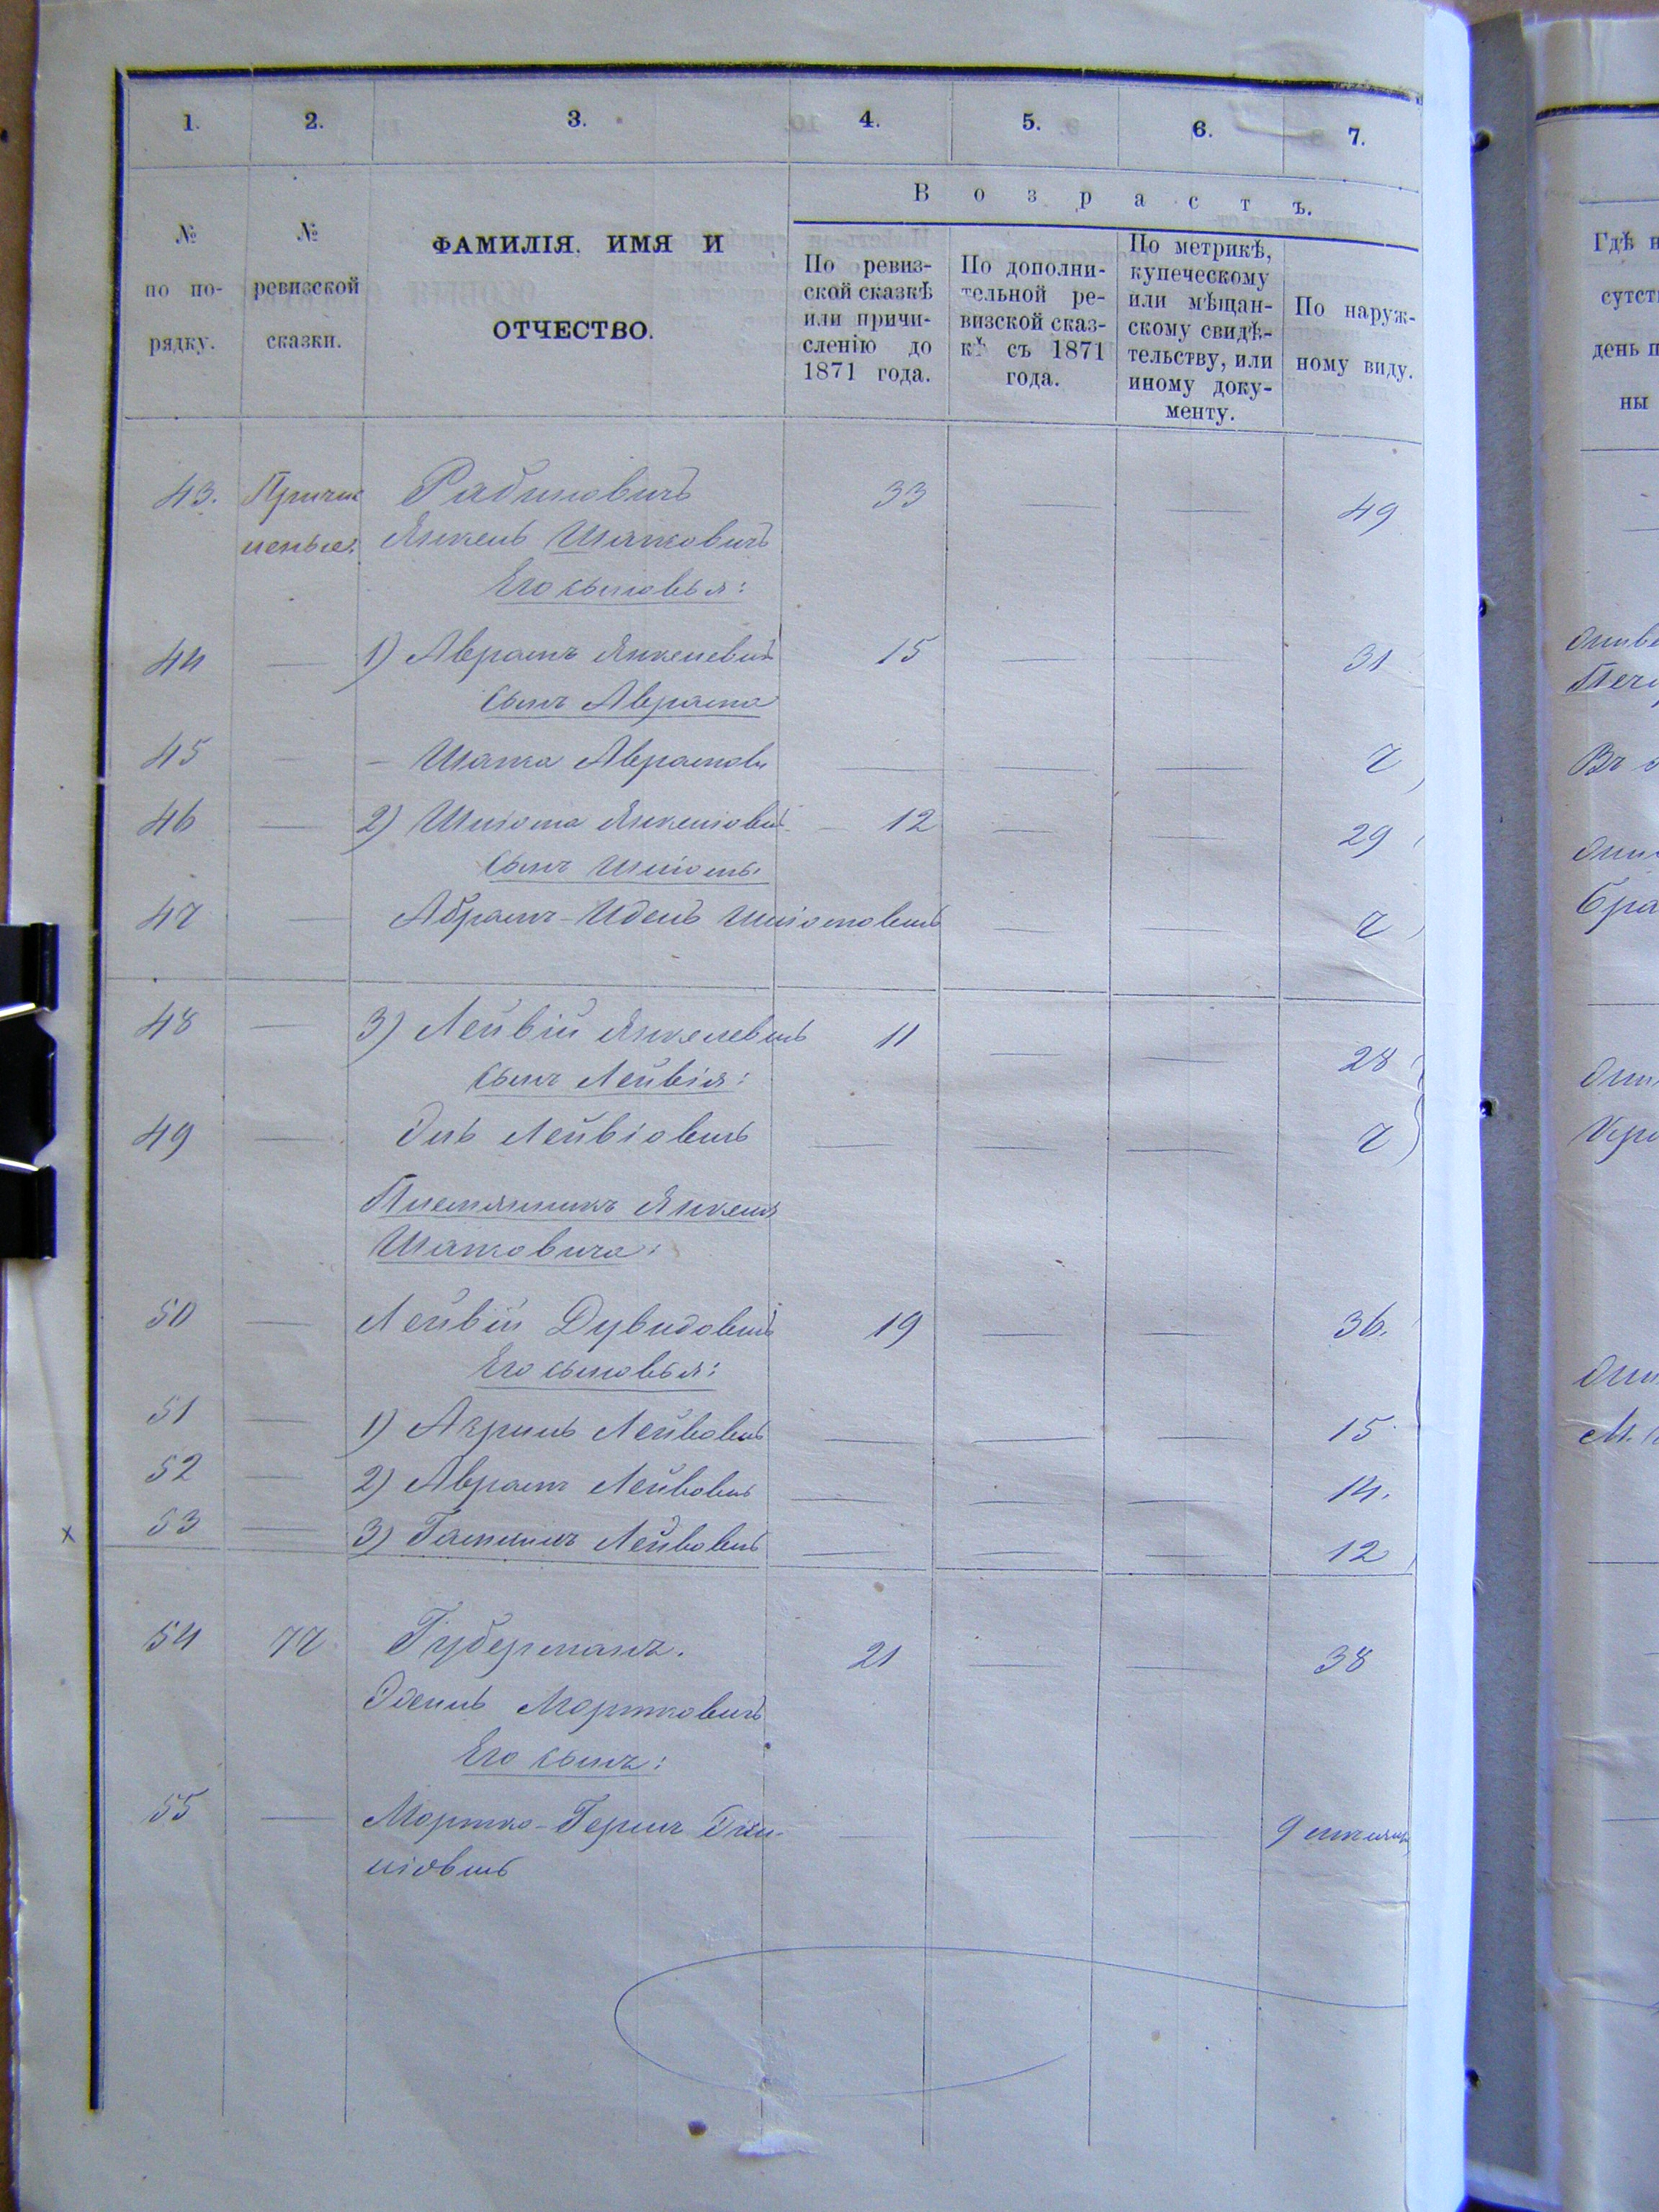 1. 2. 3. 4. 5. 6. 7.
В о з р а с т ъ.
№ по по-рядку.
№ ревизской сказки.
ФАМИЛІЯ, ИМЯ И
ОТЧЕСТВО.
По ревиз-
ской сказкѣ
или причи-
сленію до
1871 года.
По дополни-
тельной ре-
визской сказ-
кѣ съ 1871
года.
По метрикѣ,
купеческому
или мѣщан-
скому свидѣ-
тельству, или
иному доку-
менту.
По наруж-
ному виду.
43. Причис Рабиновичъ 33 — — 49
леные. Янкель Шапковичъ
Его сыновья:
44 — 1) Аврамъ Янкелевичъ 15 — — 31
сынъ Аврама
45 — — Шапка Аврамовъ — — — 7
46 — 2) Шліома Янкеліовичъ — 12 — — 29
сынъ Шліомы
47 — Абрамъ-Идель Шліомовичъ — — 7
48 — 3) Лейвій Янкелевичъ 11 — — 28
сынъ Лейвія:
49 — Эль Лейвіовичъ — — — 7
Племянникъ Янкеля
Шапковича:
50 — Лейвій Дувидовичъ 19 — — 36.
Его сыновья:
51 — 1) Азриль Лейвовичъ — — — 15
52 — 2) Аврамъ Лейвовичъ — — — 14.
53 — 3) Лейвовичъ — — — 12
54 77 Губерманъ. 21 — — 38
Мортковичъ
Его сынъ:
55 — Мортко-Гершъ — — — 9
ліовичъ
Гдѣ н
сутст
день п
ны